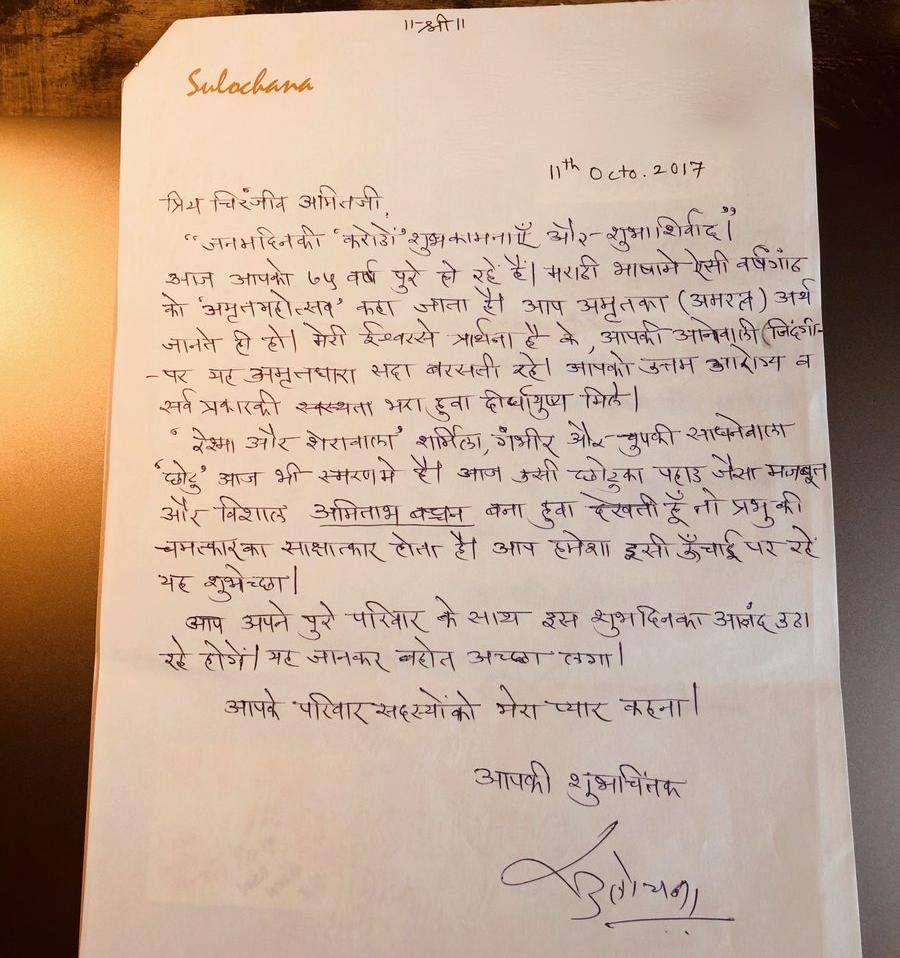 ॥श्री॥
Sulochana
11th Octo. 2017
प्रिय चिरंजीव अमितजी,
"जनमदिनकी 'करोडों' शुभकामनाएँ और शुभाशिर्वाद"।
आज आपको ७५ वर्ष पुरे हो रहें हैं। मराठी भाषामे ऐसी वर्षगांठ
को 'अमृतमहोत्सव' कहा जाता है। आप अमृतका (अमरत्व) अर्थ
जानते ही हो। मेरी ईश्वरसे प्रार्थना है के, आपकी आनेवाली जिंदगी-
-पर यह अमृतधारा सदा बरसती रहे। आपको उत्तम आरोग्य व
सर्व प्रकारकी स्वस्थता भरा हुवा दीर्घायुष्य मिले।
'रेश्मा और शेरावाला' शर्मिला, गंभीर और चुपकी साधनेवाला
'छोटु' आज भी स्मरणमे है। आज उसी छोटुका पहाड जैसा मजबूत
और विशाल अमिताभ बच्चन बना हुवा देखती हूँ तो प्रभु की
चमत्कारका साक्षात्कार होता है। आप हमेशा इसी ऊँचाई पर रहें
यह शुभेच्छा।
आप अपने पुरे परिवार के साथ इस शुभदिनका आनंद उठा
रहे होगें। यह जानकर बहोत अच्छा लगा।
आपके परिवार सदस्योंको मेरा प्यार कहना।
आपकी शुभचिंतक
सुलोचना